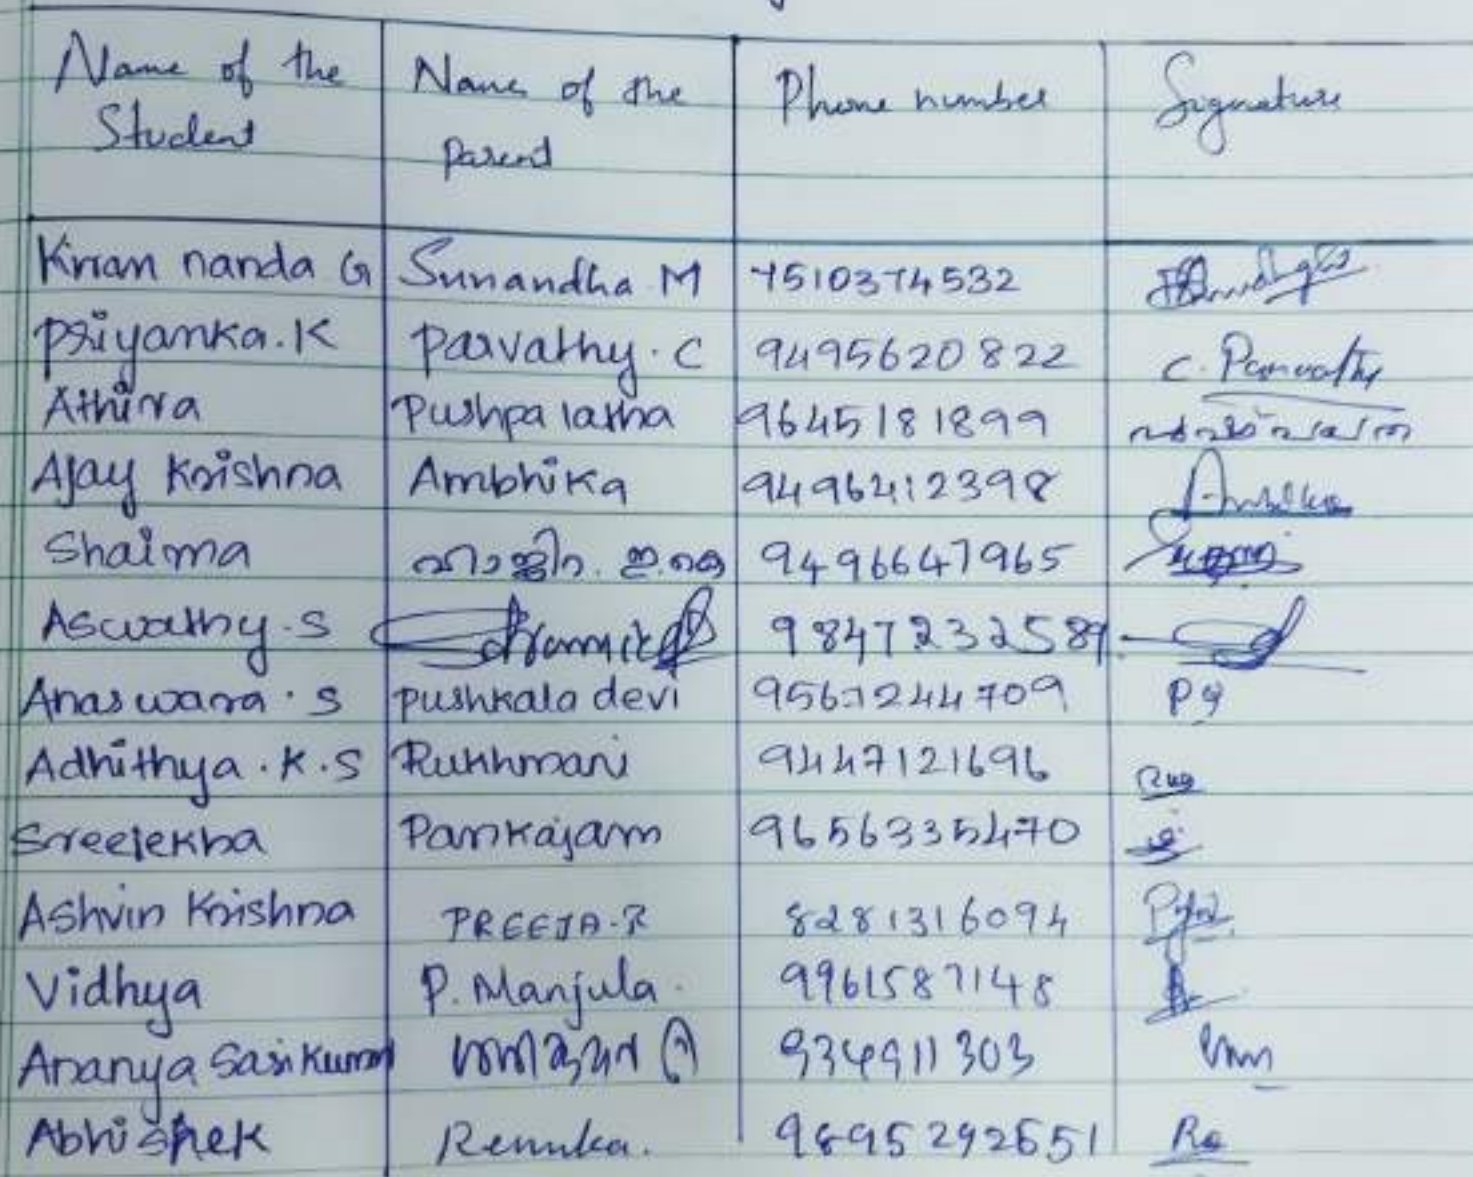 Name of the Student Name of the parent Phone number Signature
Kiran nanda G Sunandha M 7510374532
Priyanka.K Parvathy.C 9495620822 C.Parvathy
Athira Pushpalatha 9645181899
Ajay Krishna Ambhika 9496412398 Ambika
Shaima ഹാജിറ. ഇ.കെ 9496647965
Aswathy.S
Anaswara.S pushkala devi
Adhithya.K.S Rukhmani 9447121696
Sreelekha Pankajam 9656335470
Ashvin Krishna PREEJA.R 8281316094
Vidhya P.Manjula 9961587148
Ananya Sasikumar 934911303
Abhishek Renuka. 9895292651 Re